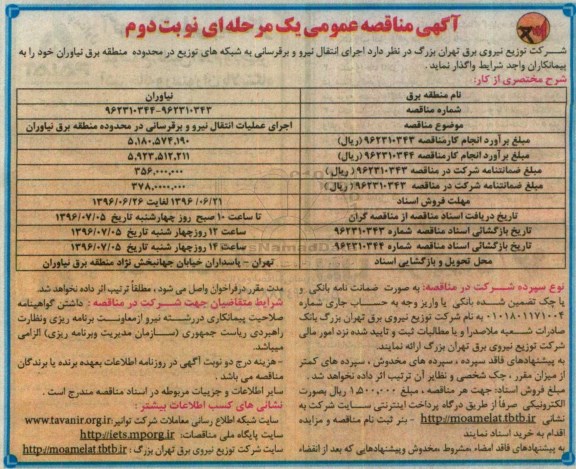 آگهی مناقصه عمومی یک مرحله ای نوبت دوم
شرکت توزیع نیروی برق تهران بزرگ در نظر دارد اجرای انتقال نیرو و برقرسانی به شبکه های توزیع در محدوده منطقه برق نیاوران خود را به
پیمانکاران واجد شرایط واگذار نماید .
شرح مختصری از کار:
نام منطقه برق نیاوران
شماره مناقصه ۹۶۲۳۱۰۳۴۳-۹۶۲۳۱۰۳۴۴
موضوع مناقصه اجرای عملیات انتقال نیرو و برقرسانی در محدوده منطقه برق نیاوران
مبلغ برآورد انجام کارمناقصه ۹۶۲۳۱۰۳۴۳ (ریال) ۵,۱۸۰,۵۷۴,۱۹۰
مبلغ برآورد انجام کار مناقصه ۹۶۲۳۱۰۳۴۴ (ریال) ۵,۹۲۳,۵۱۲,۲۱۱
مبلغ ضمانتنامه شرکت در مناقصه ۹۶۲۳۱۰۳۴۳ (ریال ) ۳۵۶,۰۰۰,۰۰۰
مبلغ ضمانتنامه شرکت در مناقصه ۹۶۲۳۱۰۳۴۳ (ریال ) ۳۷۸,۰۰۰,۰۰۰
مهلت فروش اسناد ۱۳۹۶/۰۶/۲۱ لغایت ۱۳۹۶/۰۶/۲۶
تاریخ دریافت اسناد مناقصه از مناقصه گران تا ساعت ۱۰ صبح روز چهارشنبه تاریخ ۱۳۹۶/۰۷/۰۵
تاریخ بازگشائی اسناد مناقصه شماره ۹۶۲۳۱۰۳۴۳ ساعت ۱۲ روزچهار شنبه تاریخ ۱۳۹۶/۰۷/۰۵
تاریخ بازگشائی اسناد مناقصه شماره ۹۶۲۳۱۰۳۴۴ ساعت ۱۴ روز چهار شنبه تاریخ ۱۳۹۶/۰۷/۰۵
محل تحویل و بازگشایی اسناد تهران - پاسداران خیابان جهانبخش نژاد منطقه برق نیاوران
نوع سپرده شرکت در مناقصه: به صورت ضمانت نامه بانکی و
یا چک تضمین شده بانکی یا واریز وجه به حساب جاری شماره
۰۱۰۱۸۰۱۱۷۱۰۰۴ به نام شرکت توزیع نیروی برق تهران بزرگ بانک
صادرات شعبه ملاصدرا و یا مطالبات ثبت و تایید شده نزد امور مالی
شرکت توزیع نیروی برق تهران بزرگ ارائه نمایند.
به پیشنهادهای فاقد سپرده ، سپرده های مخدوش ، سپرده های کمتر
از میزان مقرر ، چک شخصی و نظایر آن ترتیب اثر داده نخواهد شد .
مبلغ فروش اسناد: جهت هر مناقصه ، مبلغ ۱,۵۰۰,۰۰۰ ریال بصورت
الکترونیکی صرفاً از طریق درگاه پرداخت اینترنتی سایت شرکت به
نشانی http://moamelat.tbtb.ir - بنر ثبت نام مناقصه و مزایده
اقدام به خرید اسناد نمایند
به پیشنهادهای فاقد امضاء ،مشروط ،مخدوش و پیشنهادهایی که بعد از انقضاء
مدت مقرر درفراخوان واصل می شود ، مطلقاً ترتیب اثر داده نخواهد شد.
شرایط متقاضیان جهت شرکت در مناقصه : داشتن گواهینامه
صلاحیت پیمانکاری دررشته نیرو ازمعاونت برنامه ریزی ونظارت
راهبردی ریاست جمهوری (سازمان مدیریت وبرنامه ریزی) الزامی
میباشد.
- هزینه درج دو نوبت آگهی در روزنامه اطلاعات بعهده برنده یا برندگان
مناقصه می باشد .
سایر اطلاعات و جزییات مربوطه در اسناد مناقصه مندرج است .
نشانی های کسب اطلاعات بیشتر :
سایت شبکه اطلاع رسانی معاملات شرکت توانیر:www.tavanir.org.ir
سایت پایگاه ملی مناقصات: http://iets.mporg.ir
سایت شرکت توزیع نیروی برق تهران بزرگ : http://moamelat.tbtb.ir